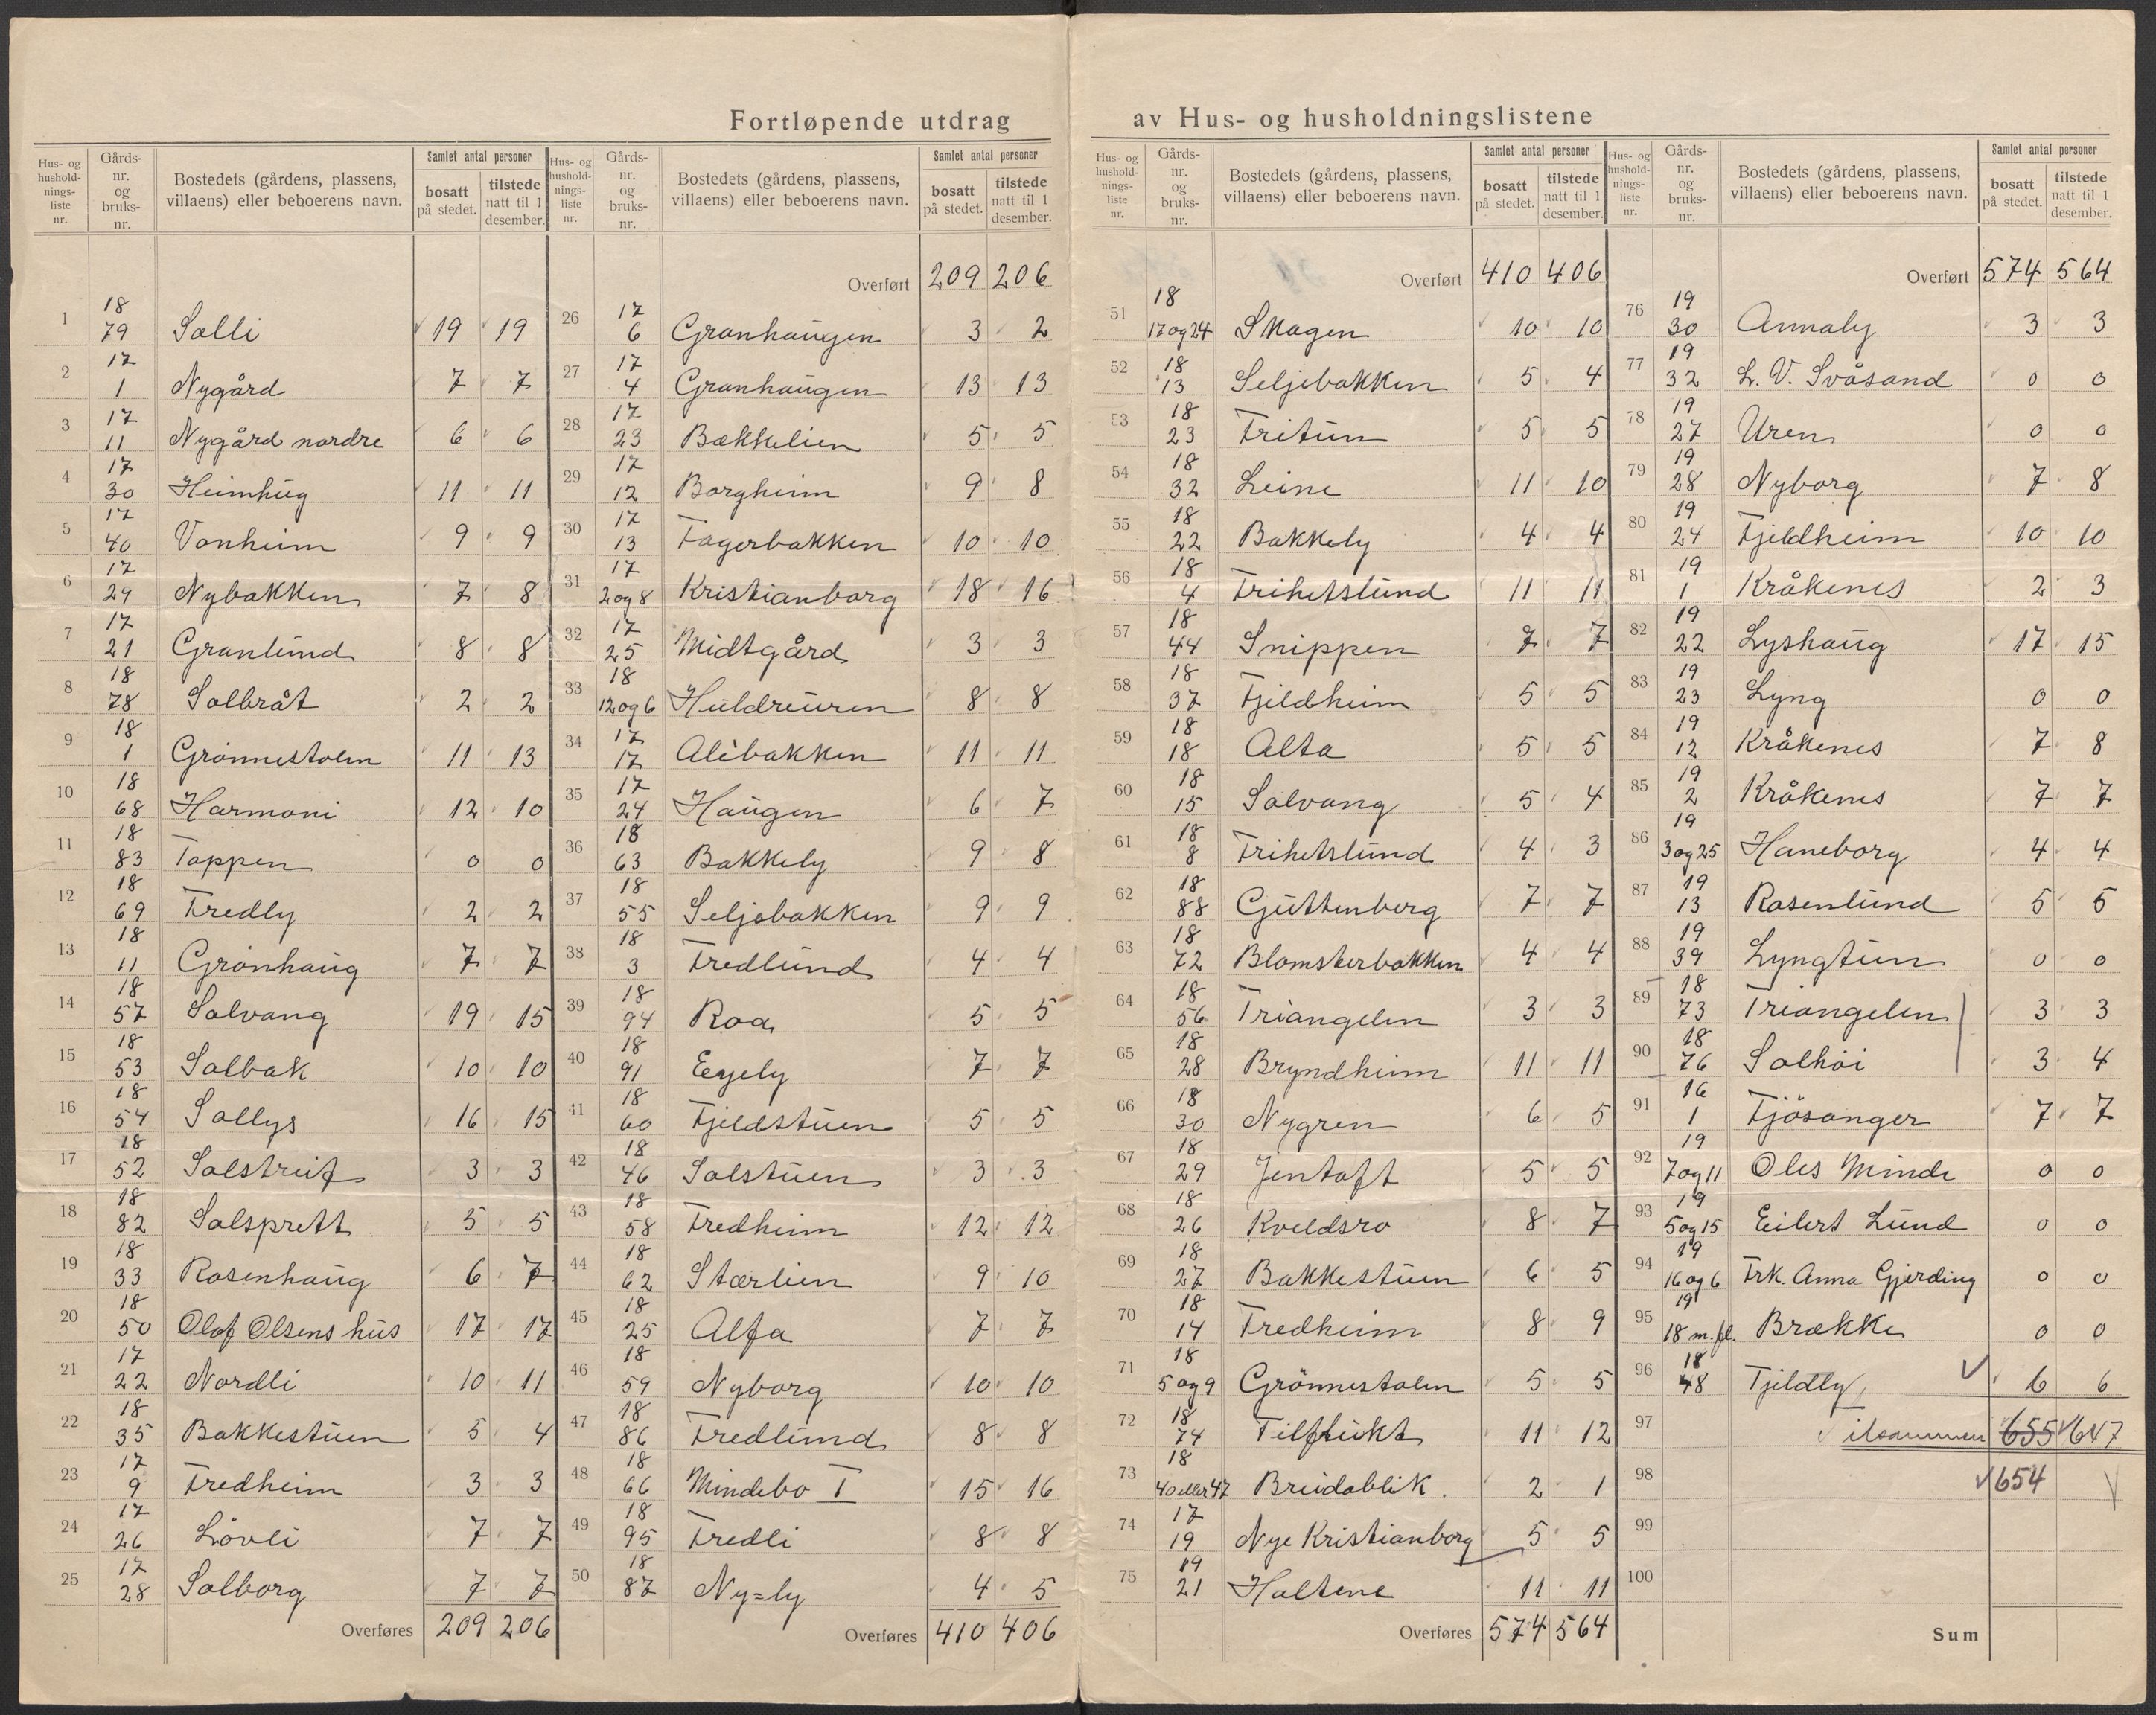 Fortløpende utdrag av Hus- og husholdningslistene
Hus- og hushold-nings-liste nr. | Gårds-nr. og bruks-nr. | Bostedets (gårdens, plassens, villaens) eller beboerens navn. | Samlet antal personer | bosatt på stedet. | tilstede natt til 1 desember.
1 18/79 Solli 19 19
2 17/1 Nygård 7 7
3 17/11 Nygård nordre 6 6
4 17/30 Heimhug 11 11
5 17/40 Vonheim 9 9
6 17/29 Nybakken 7 8
7 17/21 Granlund 8 8
8 18/78 Solbråt 2 2
9 18/1 Grønnestølen 11 13
10 18/68 Harmoni 12 10
11 18/83 Toppen 0 0
12 18/69 Fredly 2 2
13 18/11 Grønhaug 7 7
14 18/57 Solvang 19 15
15 18/53 Solbak 10 10
16 18/54 Sollys 16 15
17 18/52 Solstreif 3 3
18 18/82 Solsprett 5 5
19 18/33 Rosenhaug 6 7
20 18/50 Olaf Olsens hus 17 17
21 17/22 Nordli 10 11
22 18/35 Bakkestuen 5 4
23 17/9 Fredheim 3 3
24 17/26 Lövli 7 7
25 17/28 Solborg 7 7
Overføres 209 206
Overført 209 206
26 17/6 Granhaugen 3 2
27 17/4 Granhaugen 13 13
28 17/23 Bækkelien 5 5
29 17/12 Borgheim 9 8
30 17/13 Fagerbakken 10 10
31 17/2 og 8 Kristianborg 18 16
32 17/25 Midtgård 3 3
33 18/12 og 6 Huldreuren 8 8
34 17/17 Alébakken 11 11
35 17/24 Haugen 6 7
36 18/63 Bakkely 9 8
37 18/55 Seljebakken 9 9
38 18/3 Fredlund 4 4
39 18/94 Roa 5 5
40 18/91 Eegely 7 7
41 18/60 Fjeldstuen 5 5
42 18/46 Solstuen 3 3
43 18/58 Fredheim 12 12
44 18/62 Stærlien 9 10
45 18/25 Alfa 7 7
46 18/59 Nyborg 10 10
47 18/86 Fredlund 8 8
48 18/66 Mindebo I 15 16
49 18/95 Fredli 8 8
50 18/87 Ny=ly 4 5
Overføres 410 406
Overført 410 406
51 18/17 og 24 Skogen 10 10
52 18/13 Seljebakken 5 4
53 18/23 Fritun 5 5
54 18/32 Leine 11 10
55 18/22 Bakkely 4 4
56 18/4 Frihetslund 11 11
57 18/44 Snippen 7 7
58 18/37 Fjeldheim 5 5
59 18/18 Alta 5 5
60 18/15 Solvang 5 4
61 18/8 Frihetslund 4 3
62 18/88 Guttenberg 7 7
63 18/72 Blomsterbakken 4 4
64 18/56 Triangelen 3 3
65 18/28 Bryndheim 11 11
66 18/30 Nygren 6 5
67 18/29 Jentoft 5 5
68 18/26 Kveldsro 8 7
69 18/27 Bakkestuen 6 5
70 18/14 Fredheim 8 9
71 18/5 og 9 Grönnestølen 5 5
72 18/74 Tilflukt 11 12
73 18/40 eller 47 Breidablik. 2 1
74 17/19 Nye Kristianborg 5 5
75 19/21 Holtene 11 11
Overføres 574 564
Overført 574 564
76 19/30 Annaly 3 3
77 19/32 L. V. Svåsand 0 0
78 19/27 Uren 0 0
79 19/28 Nyborg 7 8
80 19/24 Fjeldheim 10 10
81 19/1 Kråkenes 2 3
82 19/22 Lyshaug 17 15
83 19/23 Lyng 0 0
84 19/12 Kråkenes 7 8
85 19/2 Kråkenes 7 7
86 19/3 og 25 Haneborg 4 4
87 19/13 Rosenlund 5 5
88 19/39 Lyngtun 0 0
89 18/73 Triangelen 3 3
90 18/76 Solhöi 3 4
91 16/1 Fjösanger 7 7
92 19/7 og 11 Oles Minde 0 0
93 19/5 og 15 Eilert Lund 0 0
94 19/16 og 6 Frk. Anna Gjerding 0 0
95 19/18 m.fl. Brække 0 0
96 18/48 Fjeldly 6 6
97 Tilsammen 655 647
98 654
99
100
Sum